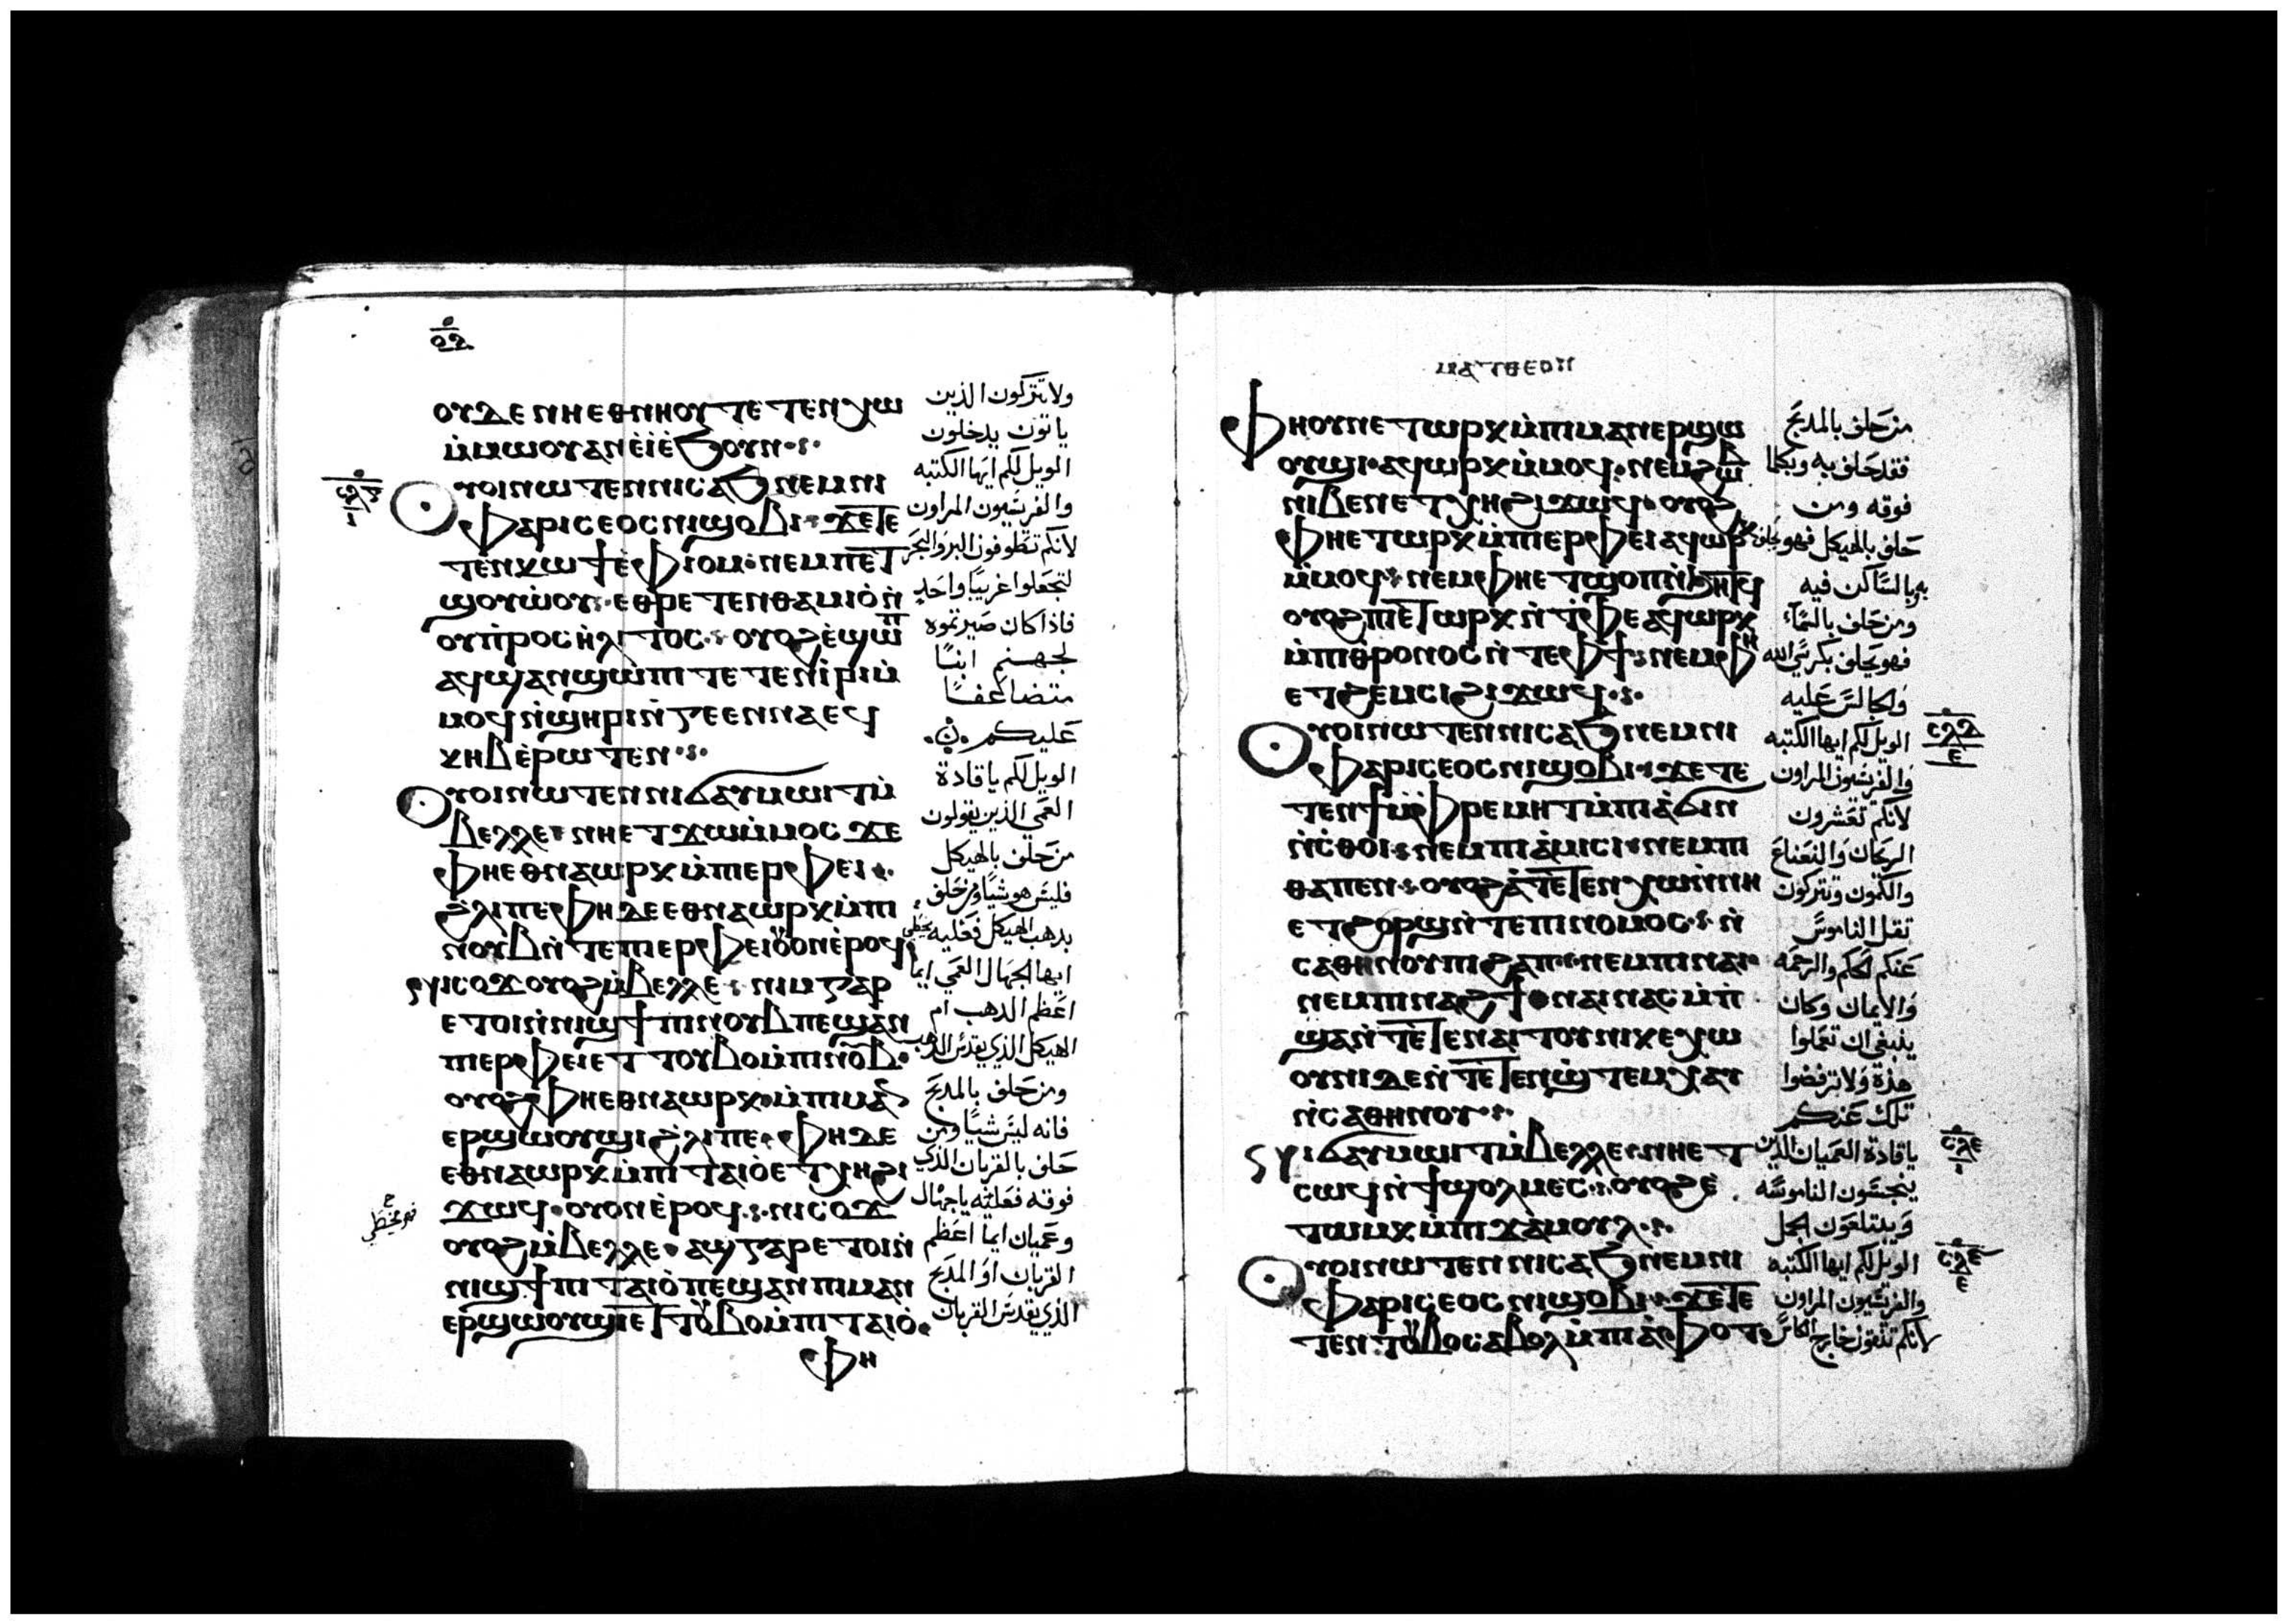 ⲟⲩⲇⲉ ⲛⲏⲉⲑⲛⲏⲟⲩ ⲧⲉⲧⲉⲛⲭⲱ
ⲙ̇ⲙⲱⲟⲩ ⲁⲛ ⲉ̇ⲓ̇ ⲉ̇ϧⲟⲩⲛ
ⲟⲩⲟⲓ ⲛⲱⲧⲉⲛ ⲛⲓⲥⲁϧ ⲛⲉⲙ ⲛⲓ
ⲫⲁⲣⲓⲥⲉⲟⲥ ⲛⲓϣⲟⲃⲓ ϫⲉ ⲧⲉ
ⲧⲉⲛⲕⲱϯ ⲉ̇ⲫⲓⲟⲙ ⲛⲉⲙ ⲡⲉⲧ
ϣⲟⲩⲱ̇ⲟⲩ ⲉⲑⲣⲉⲧⲉⲛⲑⲁⲙⲓⲟ̇ ⲛ̇
ⲟⲩⲡ̇ⲣⲟⲥⲏ̇ⲗⲓⲧⲟⲥ ⲟⲩⲟϩ ⲉ̇ϣⲱⲡ
ⲁϥϣⲁⲛϣⲱⲡⲓ ⲧⲉⲧⲉⲛⲓ̇ⲣⲓ ⲙ̇
ⲙⲟϥ ⲛ̇ϣⲏⲣⲓ ⲛ̇ⲅⲉⲉⲛⲛⲁ ⲉϥ
ⲕⲏⲃ ⲉ̇ⲣⲱⲧⲉⲛ
ⲟⲩⲟⲓ ⲛⲱⲧⲉⲛ ⲛⲓϭⲁⲩⲙⲱⲓⲧ ⲙ̇
ⲃⲉⲗⲗⲉ ⲛⲏⲉⲧϫⲱ ⲙ̇ⲙⲟⲥ ϫⲉ
ⲫⲏⲉⲑⲛⲁⲱⲣⲕ ⲙ̇ⲡⲉⲣⲫⲉⲓ
ϩⲗⲓ ⲡⲉ ⲫⲏ ⲇⲉ ⲉⲑⲛⲁⲱⲣⲕ ⲙ̇ⲡⲓ
ⲛⲟⲩⲃ ⲛ̇ⲧⲉ ⲡⲉⲣⲫⲉⲓ ⲟⲩⲟⲛ ⲉ̇ⲣⲟϥ
ⲛⲓⲥⲟϫ ⲟⲩⲟϩ ⲙ̇ⲃⲉⲗⲗⲉ ⲛⲓⲙ ⲅⲁⲣ
ⲉⲧⲟⲓ ⲛ̇ⲛⲓϣϯ ⲡⲓⲛⲟⲩⲃ ⲡⲉ ϣⲁⲛ
ⲡⲉⲣⲫⲉⲓ ⲉⲧⲧⲟⲩⲃⲟ ⲙ̇ⲡⲓⲛⲟⲩⲃ
ⲟⲩⲟϩ ⲫⲏⲉⲑⲛⲁⲱⲣⲕ ⲙ̇ⲡⲓⲙⲁⲛ
ⲉⲣϣⲱⲟⲩϣⲓ ϩⲗⲓ ⲡⲉ ⲫⲏ ⲇⲉ
ⲉⲑⲛⲁⲱⲣⲕ ⲙ̇ⲡⲓⲧⲁⲓⲟ̇ ⲉⲧⲭⲏ ϩⲓ
ϫⲱϥ ⲟⲩⲟⲛ ⲉ̇ⲣⲟϥ ⲛⲓⲥⲟϫ
ⲟⲩⲟϩ ⲙ̇ⲃⲉⲗⲗⲉ ⲁϣ ⲅⲁⲣ ⲉⲧⲟⲓ ⲛ̇
ⲛⲓϣϯ ⲡⲓⲧⲁⲓⲟ̇ ⲡⲉ ϣⲁⲛ ⲡⲓⲙⲁⲛ
ⲉⲣϣⲱⲟⲩϣⲓ ⲉⲧⲧⲟⲩⲃⲟ ⲙ̇ⲡⲓⲧⲁⲓⲟ̇
ⲫⲏ
ولا تتركون الذين
ياتون يدخلون
الويل لكم ايها الكتبه
والفريسيون المراون
لانكم تطوفون البر والبحر
لتجعلوا غريبا واحد
فاذا كان صيرتموه
لجهنم ابنا
متضاعفا
عليكم
الويل لكم يا قادة
العمي الذين يقولون
من حلف بالهيكل
فليس هو شيا ومن حلف
بدهب الهيكل فعليه يخطي
ايها الجهال العمي ايما
اعظم الدهب ام
الهيكل الذي يقدس الدهب
ومن حلف بالمدبح
فانه ليس شيا ومن
حلف بالقربان الذي
فوقه فعليه يا جهال
وعميان ايما اعظم
القربان او المدبح
الذي يقدس القربان
ⲙⲁⲧⲑⲉⲟⲛ
ⲫⲏ ⲟⲩⲛ ⲉⲧⲱⲣⲕ ⲙ̇ⲡⲓⲙⲁⲛⲉⲣϣⲱ
ⲟⲩϣⲓ ⲁϥⲱⲣⲕ ⲙ̇ⲙⲟϥ ⲛⲉⲙ ϩⲱⲃ
ⲛⲓⲃⲉⲛ ⲉⲧⲭⲏ ϩⲓϫⲱϥ ⲟⲩⲟϩ
ⲫⲏⲉⲧⲱⲣⲕ ⲙ̇ⲡⲉⲣⲫⲉⲓ ⲁϥⲱⲣⲕ
ⲙ̇ⲙⲟϥ ⲛⲉⲙ ⲫⲏⲉⲧϣⲟⲡ ⲛ̇ϧⲏⲧϥ
ⲟⲩⲟϩ ⲡⲉⲧⲱⲣⲕ ⲛ̇ⲧ̇ⲫⲉ ⲁϥⲱⲣⲕ
ⲙ̇ⲡⲓⲑⲣⲟⲛⲟⲥ ⲛ̇ⲧⲉ ⲫϯ ⲛⲉⲙ ⲫⲏ
ⲉⲧϩⲉⲙⲥⲓ ϩⲓϫⲱϥ
ⲟⲩⲟⲓ ⲛⲱⲧⲉⲛ ⲛⲓⲥⲁϧ ⲛⲉⲙ ⲛⲓ
ⲫⲁⲣⲓⲥⲉⲟⲥ ⲛⲓϣⲟⲃⲓ ϫⲉ ⲧⲉ
ⲧⲉⲛϯ ⲙ̇ⲫⲣⲉⲙⲏⲧ ⲙ̇ⲡⲓⲁ̇ϭⲓⲛ
ⲛ̇ⲥ̇ⲑⲟⲓ ⲛⲉⲙ ⲡⲓⲁ̇ⲙⲓⲥⲓ ⲛⲉⲙ ⲡⲓ
ⲑⲁⲡⲉⲛ ⲟⲩⲟϩ ⲁ̇ⲧⲉⲧⲉⲛⲭⲱ ⲛ̇ⲛⲏ
ⲉⲧϩⲟⲣϣ ⲛ̇ⲧⲉ ⲡⲓⲛⲟⲙⲟⲥ ⲛ̇
ⲥⲁⲑⲏⲛⲟⲩ ⲡⲓϩⲁⲡ ⲛⲉⲙ ⲡⲓⲛⲁⲓ
ⲛⲉⲙ ⲡⲓⲛⲁϩϯ ⲛⲁⲓ ⲛⲁⲥⲙ̇ⲡ̇
ϣⲁ ⲛ̇ⲧⲉⲧⲉⲛⲁⲓⲧⲟⲩ ⲛⲓⲕⲉⲭⲱ
ⲟⲩⲛⲓ ⲇⲉ ⲛ̇ⲧⲉⲧⲉⲛϣ̇ⲧⲉⲙⲭⲁⲩ
ⲛ̇ⲥⲁⲑⲏⲛⲟⲩ
ⲛⲓϭⲁⲩⲙⲱⲓⲧ ⲙ̇ⲃⲉⲗⲗⲉ ⲛⲏⲉⲧ
ⲥⲱϥ ⲛ̇ϯϣⲟⲗⲙⲉⲥ ⲟⲩⲟϩ ⲉ
ⲧⲱⲙⲕ ⲙ̇ⲡⲓϫⲁⲙⲟⲩⲗ
ⲟⲩⲟⲓ ⲛⲱⲧⲉⲛ ⲛⲓⲥⲁϧ ⲛⲉⲙ ⲛⲓ
ⲫⲁⲣⲓⲥⲉⲟⲥ ⲛⲓϣⲟⲃⲓ ϫⲉ ⲧⲉ
ⲧⲉⲛⲧⲟⲩⲃⲟ ⲥⲁⲃⲟⲗ ⲙ̇ⲡⲓⲁ̇ⲫⲟⲧ
من حلف بالمدبح
فقد حلف به وبكلما
فوقه ومن
حلف بالهيكل فهو يحلف
به وبالساكن فيه
ومن حلف بالسماء
فهو يحلف بكرسي الله
والجالس عليه
الويل لكم ايها الكتبه
والفريسيون المراون
لانكم تعشرون
الريحان والنعناع
والكمون وتتركون
تقل الناموس
عنكم الحكم والرحمه
والايمان وكان
ينبغي ان تعملوا
هذه ولا ترفضوا
تلك عنكم
يا قادة العميان الذين
ينجسون الناموسه
ويبتلعون الجمل
الويل لكم ايها الكتبه
والفريسيون المراون
لانكم تنقون خارج الكاس